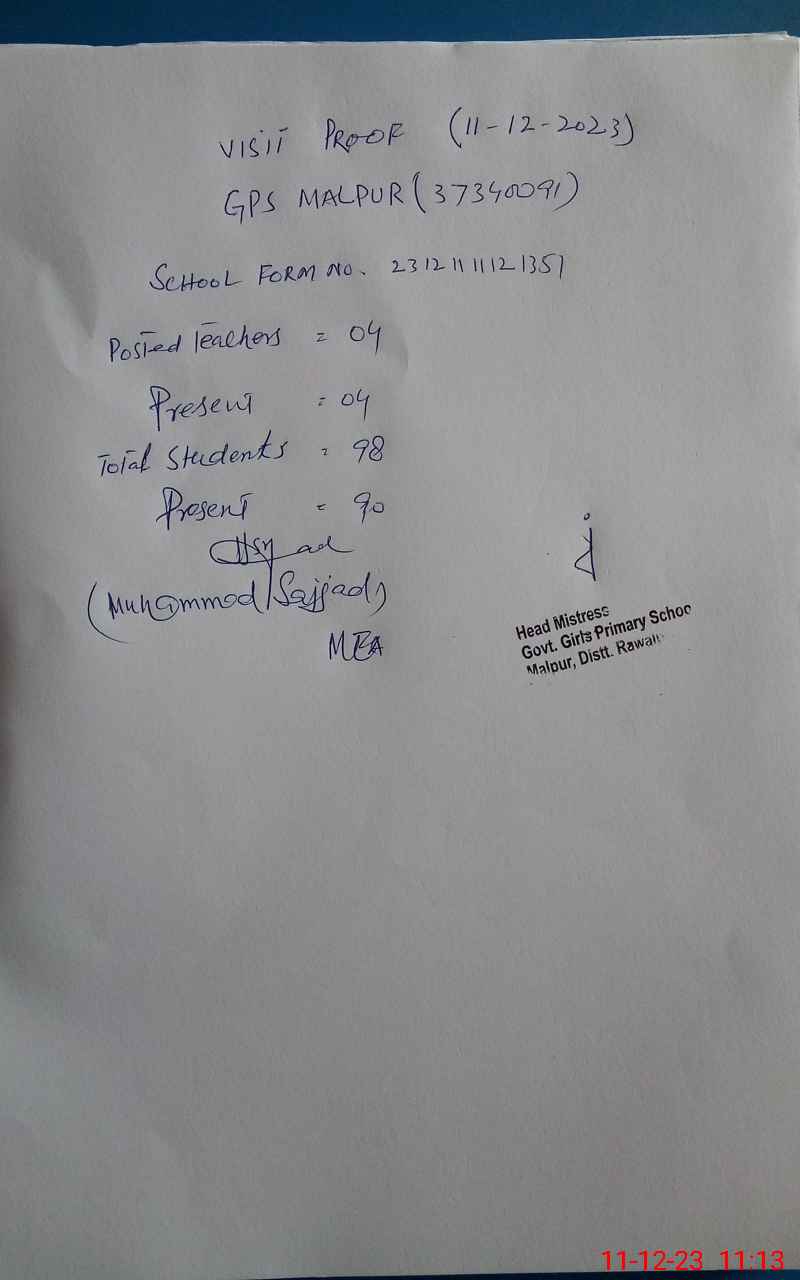 VISIT PROOF (11-12-2023)
GPS MALPUR (37340091)
SCHOOL FORM NO. 231211111121351
Posted Teachers = 04
Present = 04
Total Students = 98
Present = 90
(Muhammad Sajjad)
MEA
Head Mistress
Govt. Girls Primary Schoo
Malpur, Distt. Rawal
11-12-23 11:13